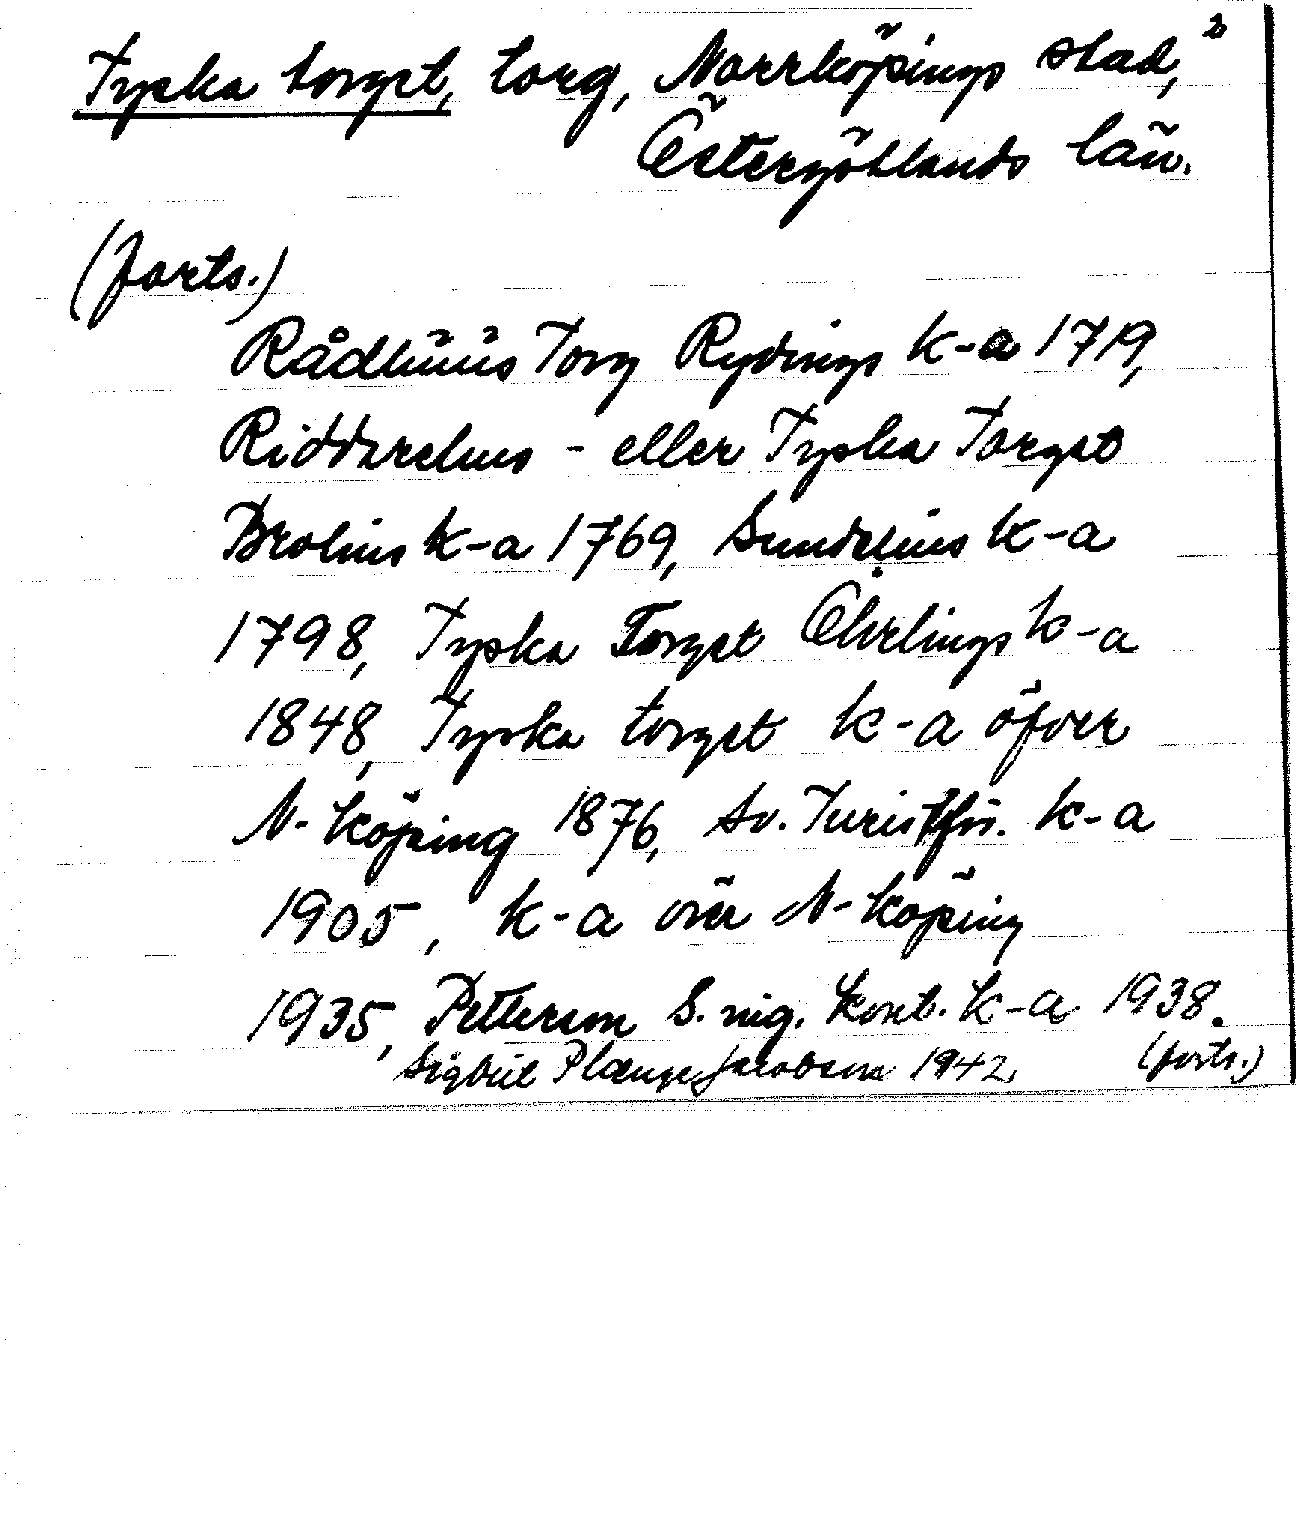 Tyska torget, torg, Norrköpings stad, 2
Östergötlands län.
(forts.)
Rådhüüs Torg Rydings k-a 1719,
Riddarehus - eller Tyska Torget
Brolins k-a 1769, Sundelius k-a
1798, Tyska Torget Öhrlings k-a
1848, Tyska torget k-a öfver
N-köping 1876, Sv. Turistför. k-a
1905, k-a över N-köping
1935, Petterson S. nig. kont. k-a 1938.
Sigbiit Plænge Jacobson 1942 (forts.)